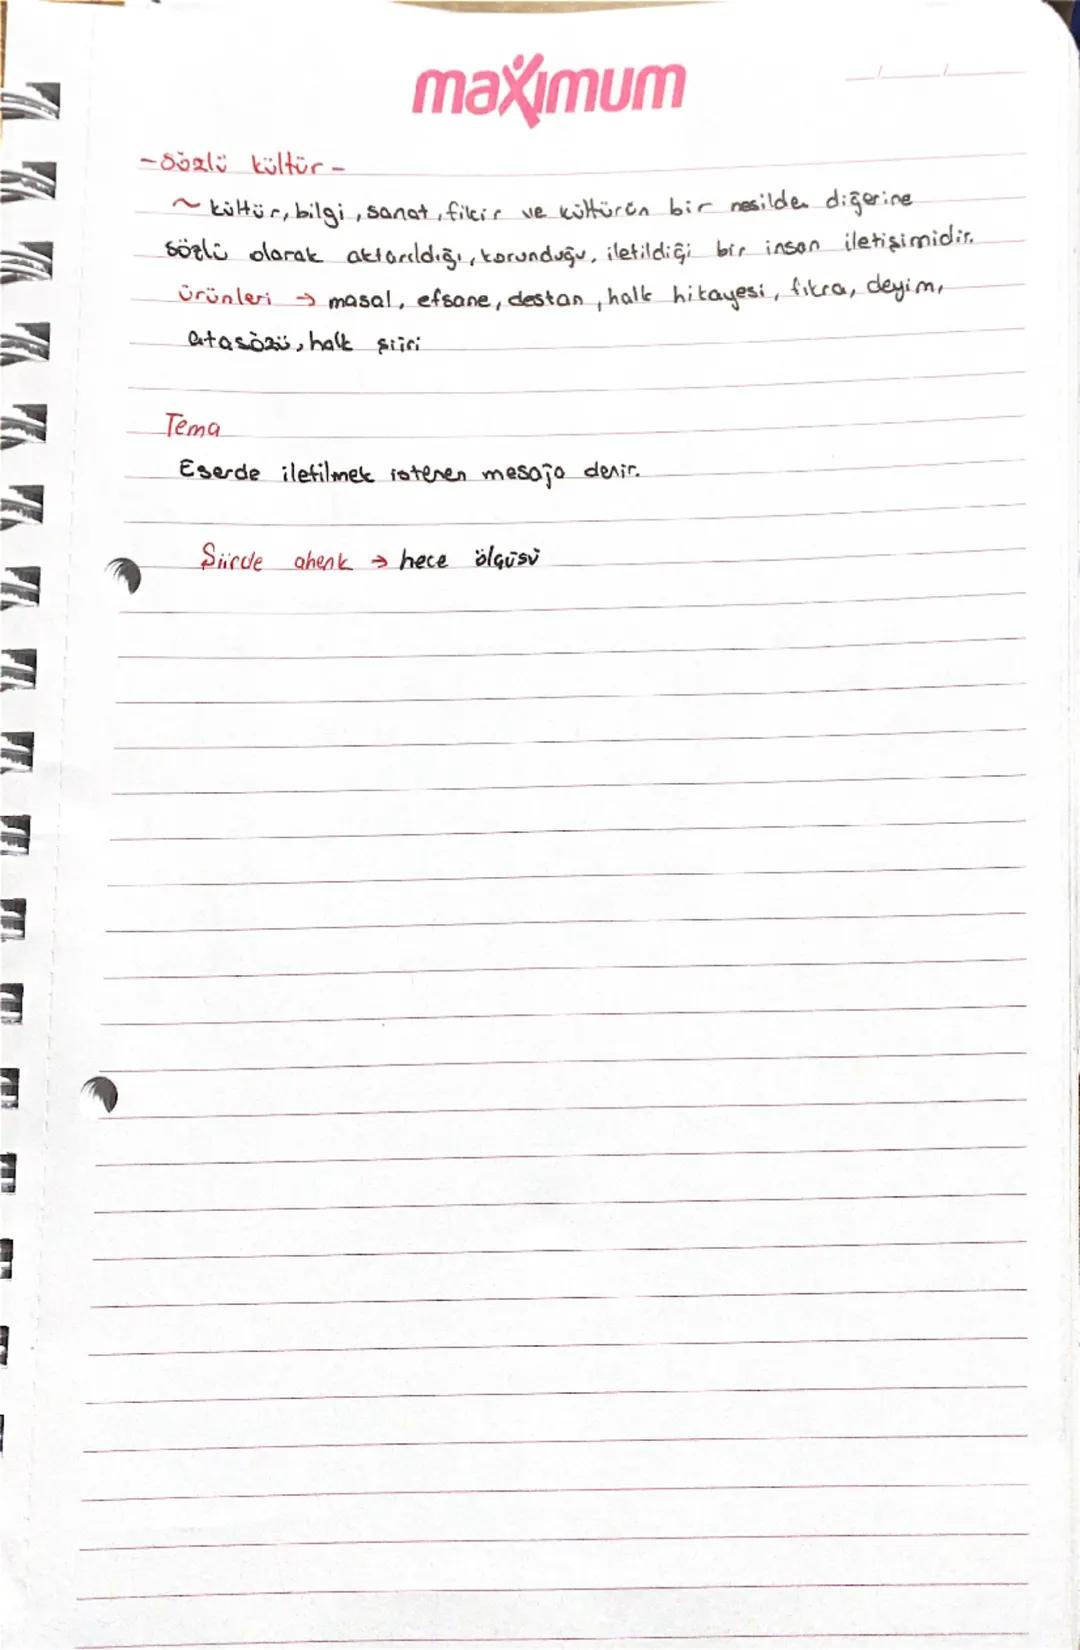 maximum
- Sözlü kültür -
~ kültür, bilgi, sanat, fikir ve kültürün bir nesilden diğerine
sözlü olarak aktarıldığı, korunduğu, iletildiği bir insan iletişimidir.
ürünleri → masal, efsane, destan, halk hikayesi, fıkra, deyim,
atasözü, halk şiiri
Tema
Eserde iletilmek istenen mesaja denir.
Şiirde ahenk → hece ölçüsü